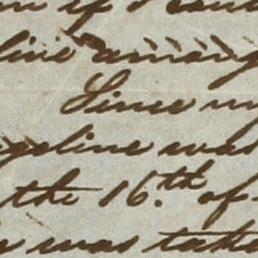 if I
line among
Since my
geline was
the 16.th of
was take